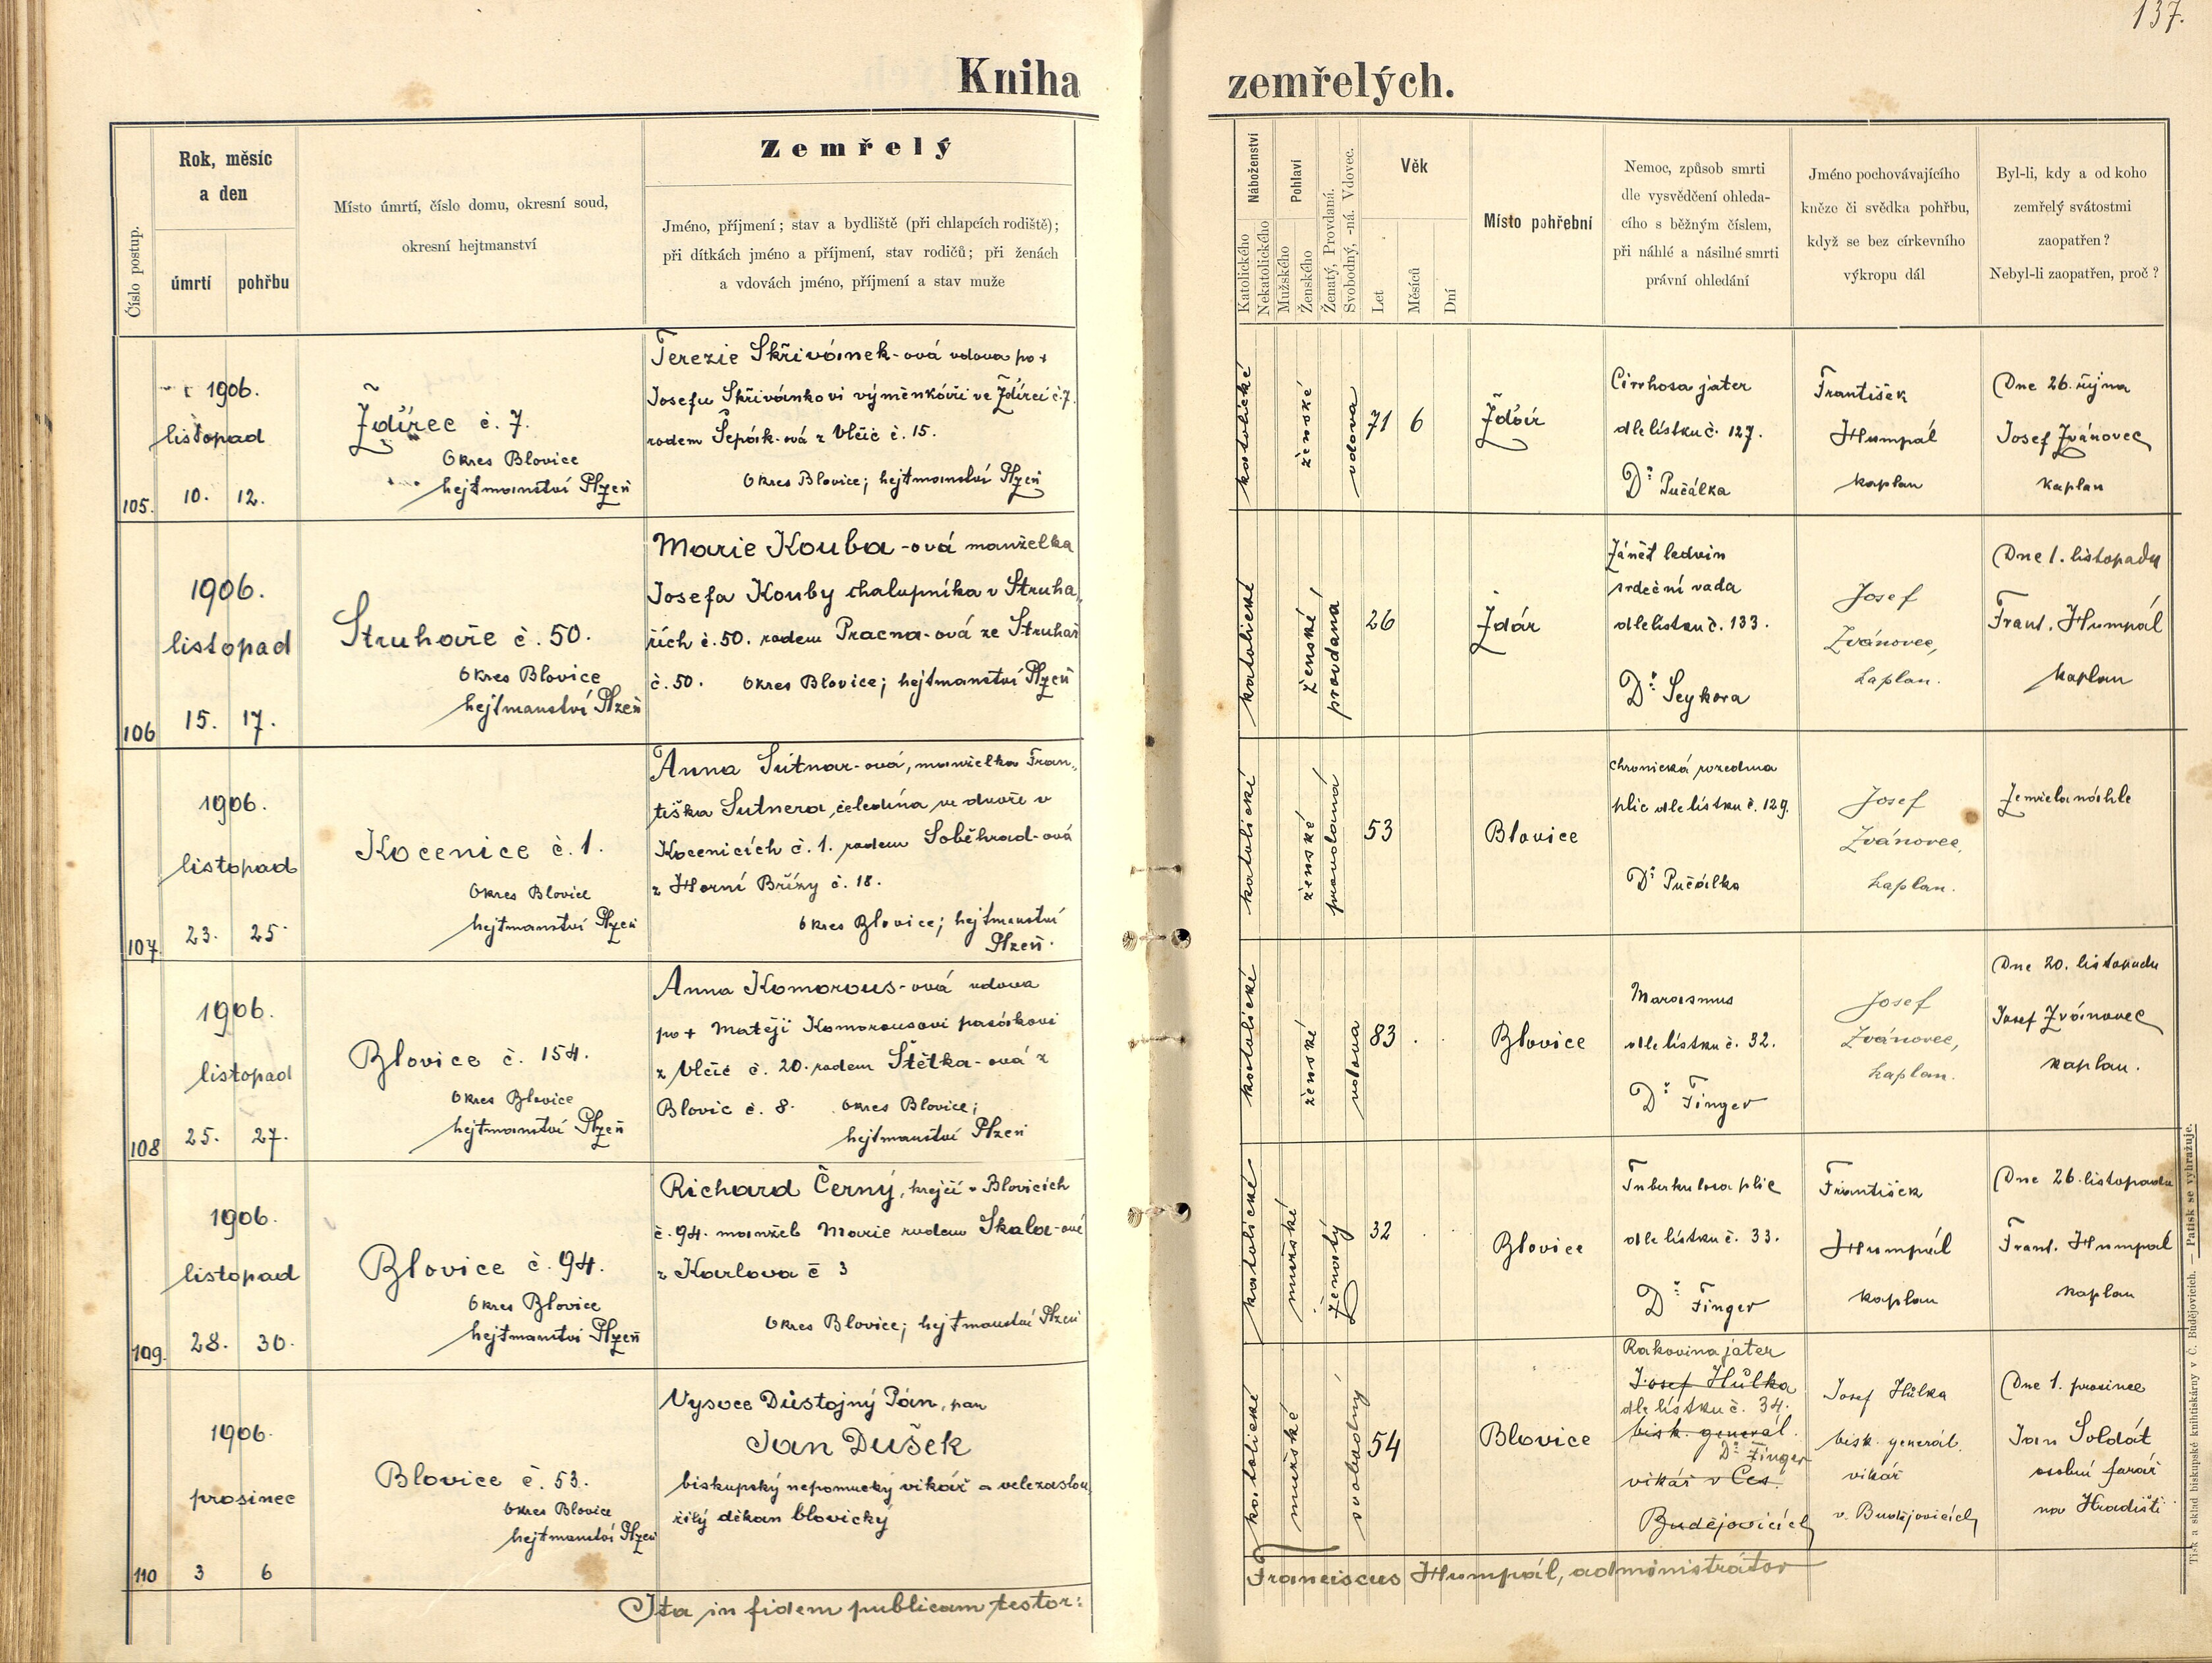 137.
Kniha zemřelých.
Číslo postup.
Rok, měsíc
a den
úmrtí
pohřbu
Místo úmrtí, číslo domu, okresní soud,
okresní hejtmanství
Zemřelý
Jméno, příjmení; stav a bydliště (při chlapcích rodiště);
při dítkách jméno a příjmení, stav rodičů; při ženách
a vdovách jméno, příjmení a stav muže
Náboženství
Katolického
Nekatolického
Pohlaví
Mužského
Ženského
Ženatý, Provdaná.
Svobodný, -ná. Vdovec.
Věk
Let
Měsíců
Dní
Místo pohřební
Nemoc, způsob smrti
dle vysvědčení ohleda-
cího s běžným číslem,
při náhlé a násilné smrti
právní ohledání
Jméno pochovávajícího
kněze či svědka pohřbu,
když se bez církevního
výkropu dál
Byl-li, kdy a od koho
zemřelý svátostmi
zaopatřen?
Nebyl-li zaopatřen, proč?
105.
1906.
listopad
10.
12.
Ždírec č. 7.
Okres Blovice
hejtmanství Plzeň
Terezie Skřivánek-ová vdova po +
Josefu Skřivánkovi výměnkáři ve Ždírci č. 7.
rodem Šepák-ová z Vlčic č. 15.
Okres Blovice; hejtmanství Plzeň
katolické
ženské
vdova
71
6
Žďár
Cirrhosa jater
dle lístku č. 127.
Dr Pučálka
František
Humpál
kaplan
Dne 26. října
Josef Zvánovec
kaplan
106
1906.
listopad
15.
17.
Struhaře č. 50.
Okres Blovice
hejtmanství Plzeň
Marie Kouba-ová manželka
Josefa Kouby chalupníka v Struha„
řích č. 50. rodem Pracna-ová ze Struhař
č. 50. Okres Blovice; hejtmanství Plzeň
katolické
ženské
provdaná
26
Ždár
Zánět ledvin
srdeční vada
dle lístku č. 133.
Dr. Seykora
Josef
Zvánovec,
kaplan.
Dne 1. listopadu
Frant. Humpál
kaplan
107
1906.
listopad
23.
25.
Kocenice č. 1.
Okres Blovice
hejtmanství Plzeň
Anna Sutnar-ová, manželka Fran„
tiška Sutnera, čeledína ve dvoře v
Kocenicích č. 1. rodem Soběhrad-ová
z Horní Břízy č. 18.
Okres Blovice; hejtmanství
Plzeň.
katolické
ženské
provdaná
53
Blovice
chronická rozedma
plic dle lístku č. 129.
Dr Pučálka
Josef
Zvánovec,
kaplan.
Zemřela náhle
108
1906.
listopad
25.
27.
Blovice č. 154.
Okres Blovice
hejtmanství Plzeň
Anna Komorous-ová vdova
po + Matěji Komorousovi pasákovi
z Vlčic č. 20. rodem Štětka-ová z
Blovic č. 8. Okres Blovice;
hejtmanství Plzeň
katolické
ženské
vdova
83
Blovice
Marasmus
dle lístku č. 32.
Dr Finger
Josef
Zvánovec,
kaplan.
Dne 20. listopadu
Josef Zvánovec
kaplan.
109.
1906.
listopad
28.
30.
Blovice č. 94.
Okres Blovice
hejtmanství Plzeň
Richard Černý, krejčí v Blovicích
č. 94. manžel Marie rodem Skala-ové
z Karlova č 3
Okres Blovice; hejtmanství Plzeň
katolické
mužské
ženatý
32
Blovice
Tuberkulosa plic
dle lístku č. 33.
Dr Finger
František
Humpál
kaplan
Dne 26. listopadu
Frant. Humpál
kaplan
110
1906.
prosinec
3
6
Blovice č. 53.
Okres Blovice
hejtmanství Plzeň
Vysoce Důstojný Pán, pan
Jan Dušek
biskupský nepomucký vikář a velezaslou„
žilý děkan blovický
katolické
mužské
svobodný
54
Blovice
Rakovina jater
Josef Hůlka
dle lístku č. 34.
bisk. generál.
Dr Finger
vikář v Čes.
Budějovicích
Josef Hůlka
bisk. generál.
vikář
v. Budějovicích
Dne 1. prosince
Jan Soldát
osobní farář
na Hradišti
Ita in fidem publicam testor:
Franciscus Humpál, administrátor
Tisk a sklad biskupské knihtiskárny v Č. Budějovicích. — Patisk se vyhražuje.